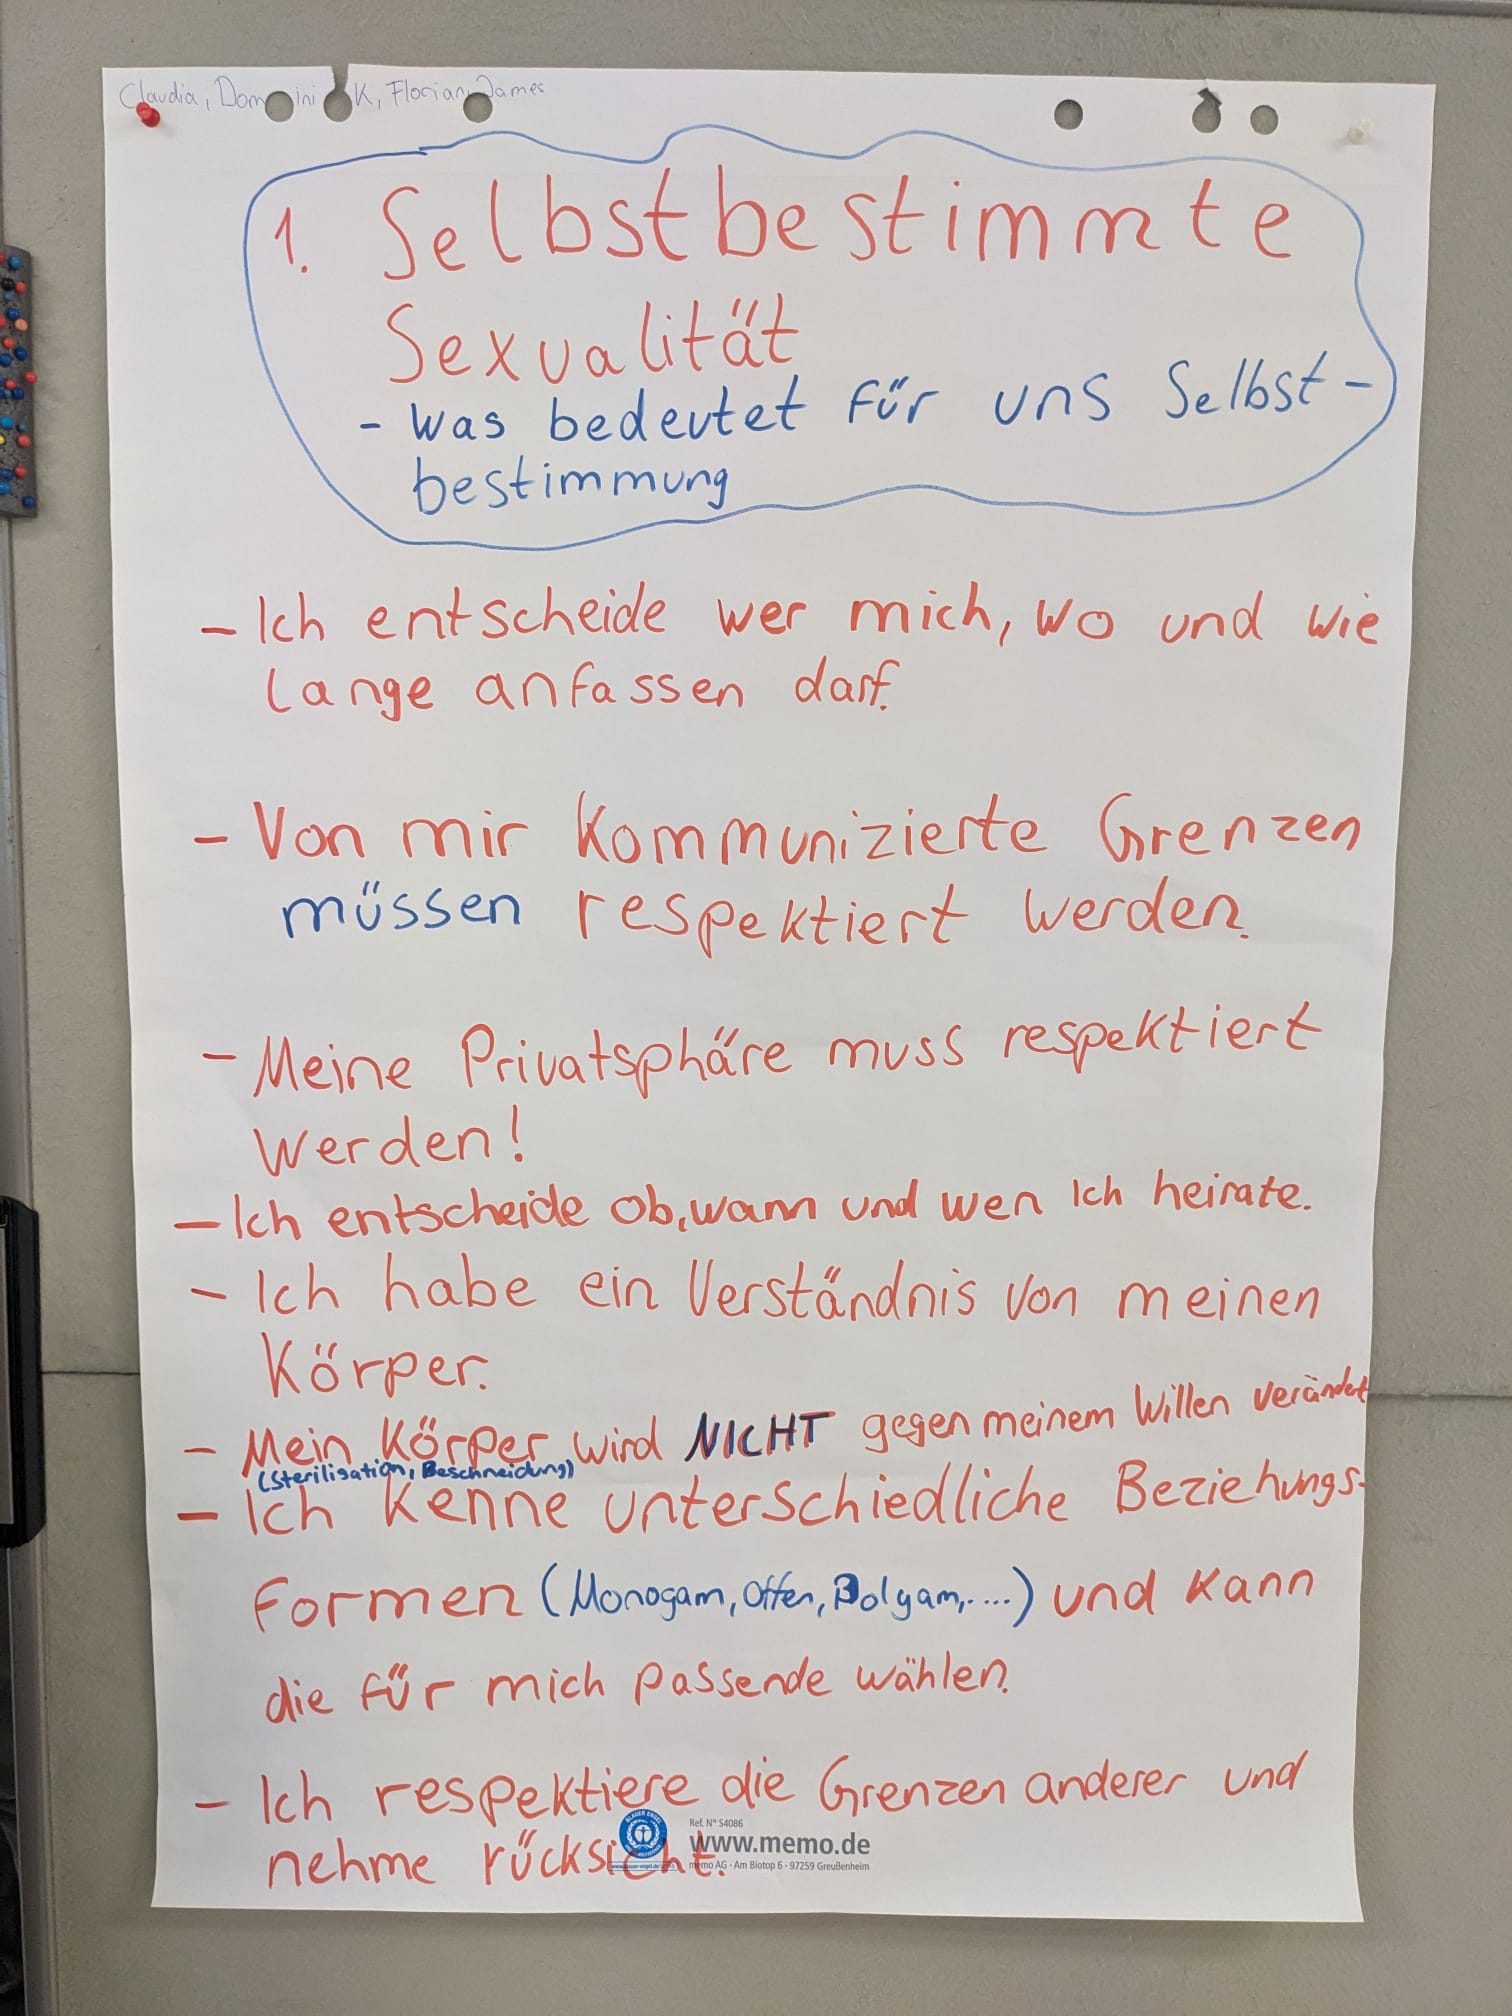 Claudia, Dominik, Florian, James
1. Selbstbestimmte
Sexualität
- Was bedeutet für uns Selbst-
bestimmung
- Ich entscheide wer mich, wo und wie
lange anfassen darf.
- Von mir kommunizierte Grenzen
müssen respektiert werden.
- Meine Privatsphäre muss respektiert
werden!
- Ich entscheide ob, wann und wen ich heirate.
- Ich habe ein Verständnis von meinen
Körper.
- Mein Körper wird NICHT gegen meinem Willen verändert
(Sterilisation, Beschneidung)
- Ich kenne unterschiedliche Beziehungs-
formen (Monogam, Offen, Polygam, ....) und kann
die für mich passende wählen.
- Ich respektiere die Grenzen anderer und
nehme rücksicht.
BLAUER ENGEL
Ref. N° S4086
www.memo.de
memo AG · Am Biotop 6 · 97259 Greußenheim